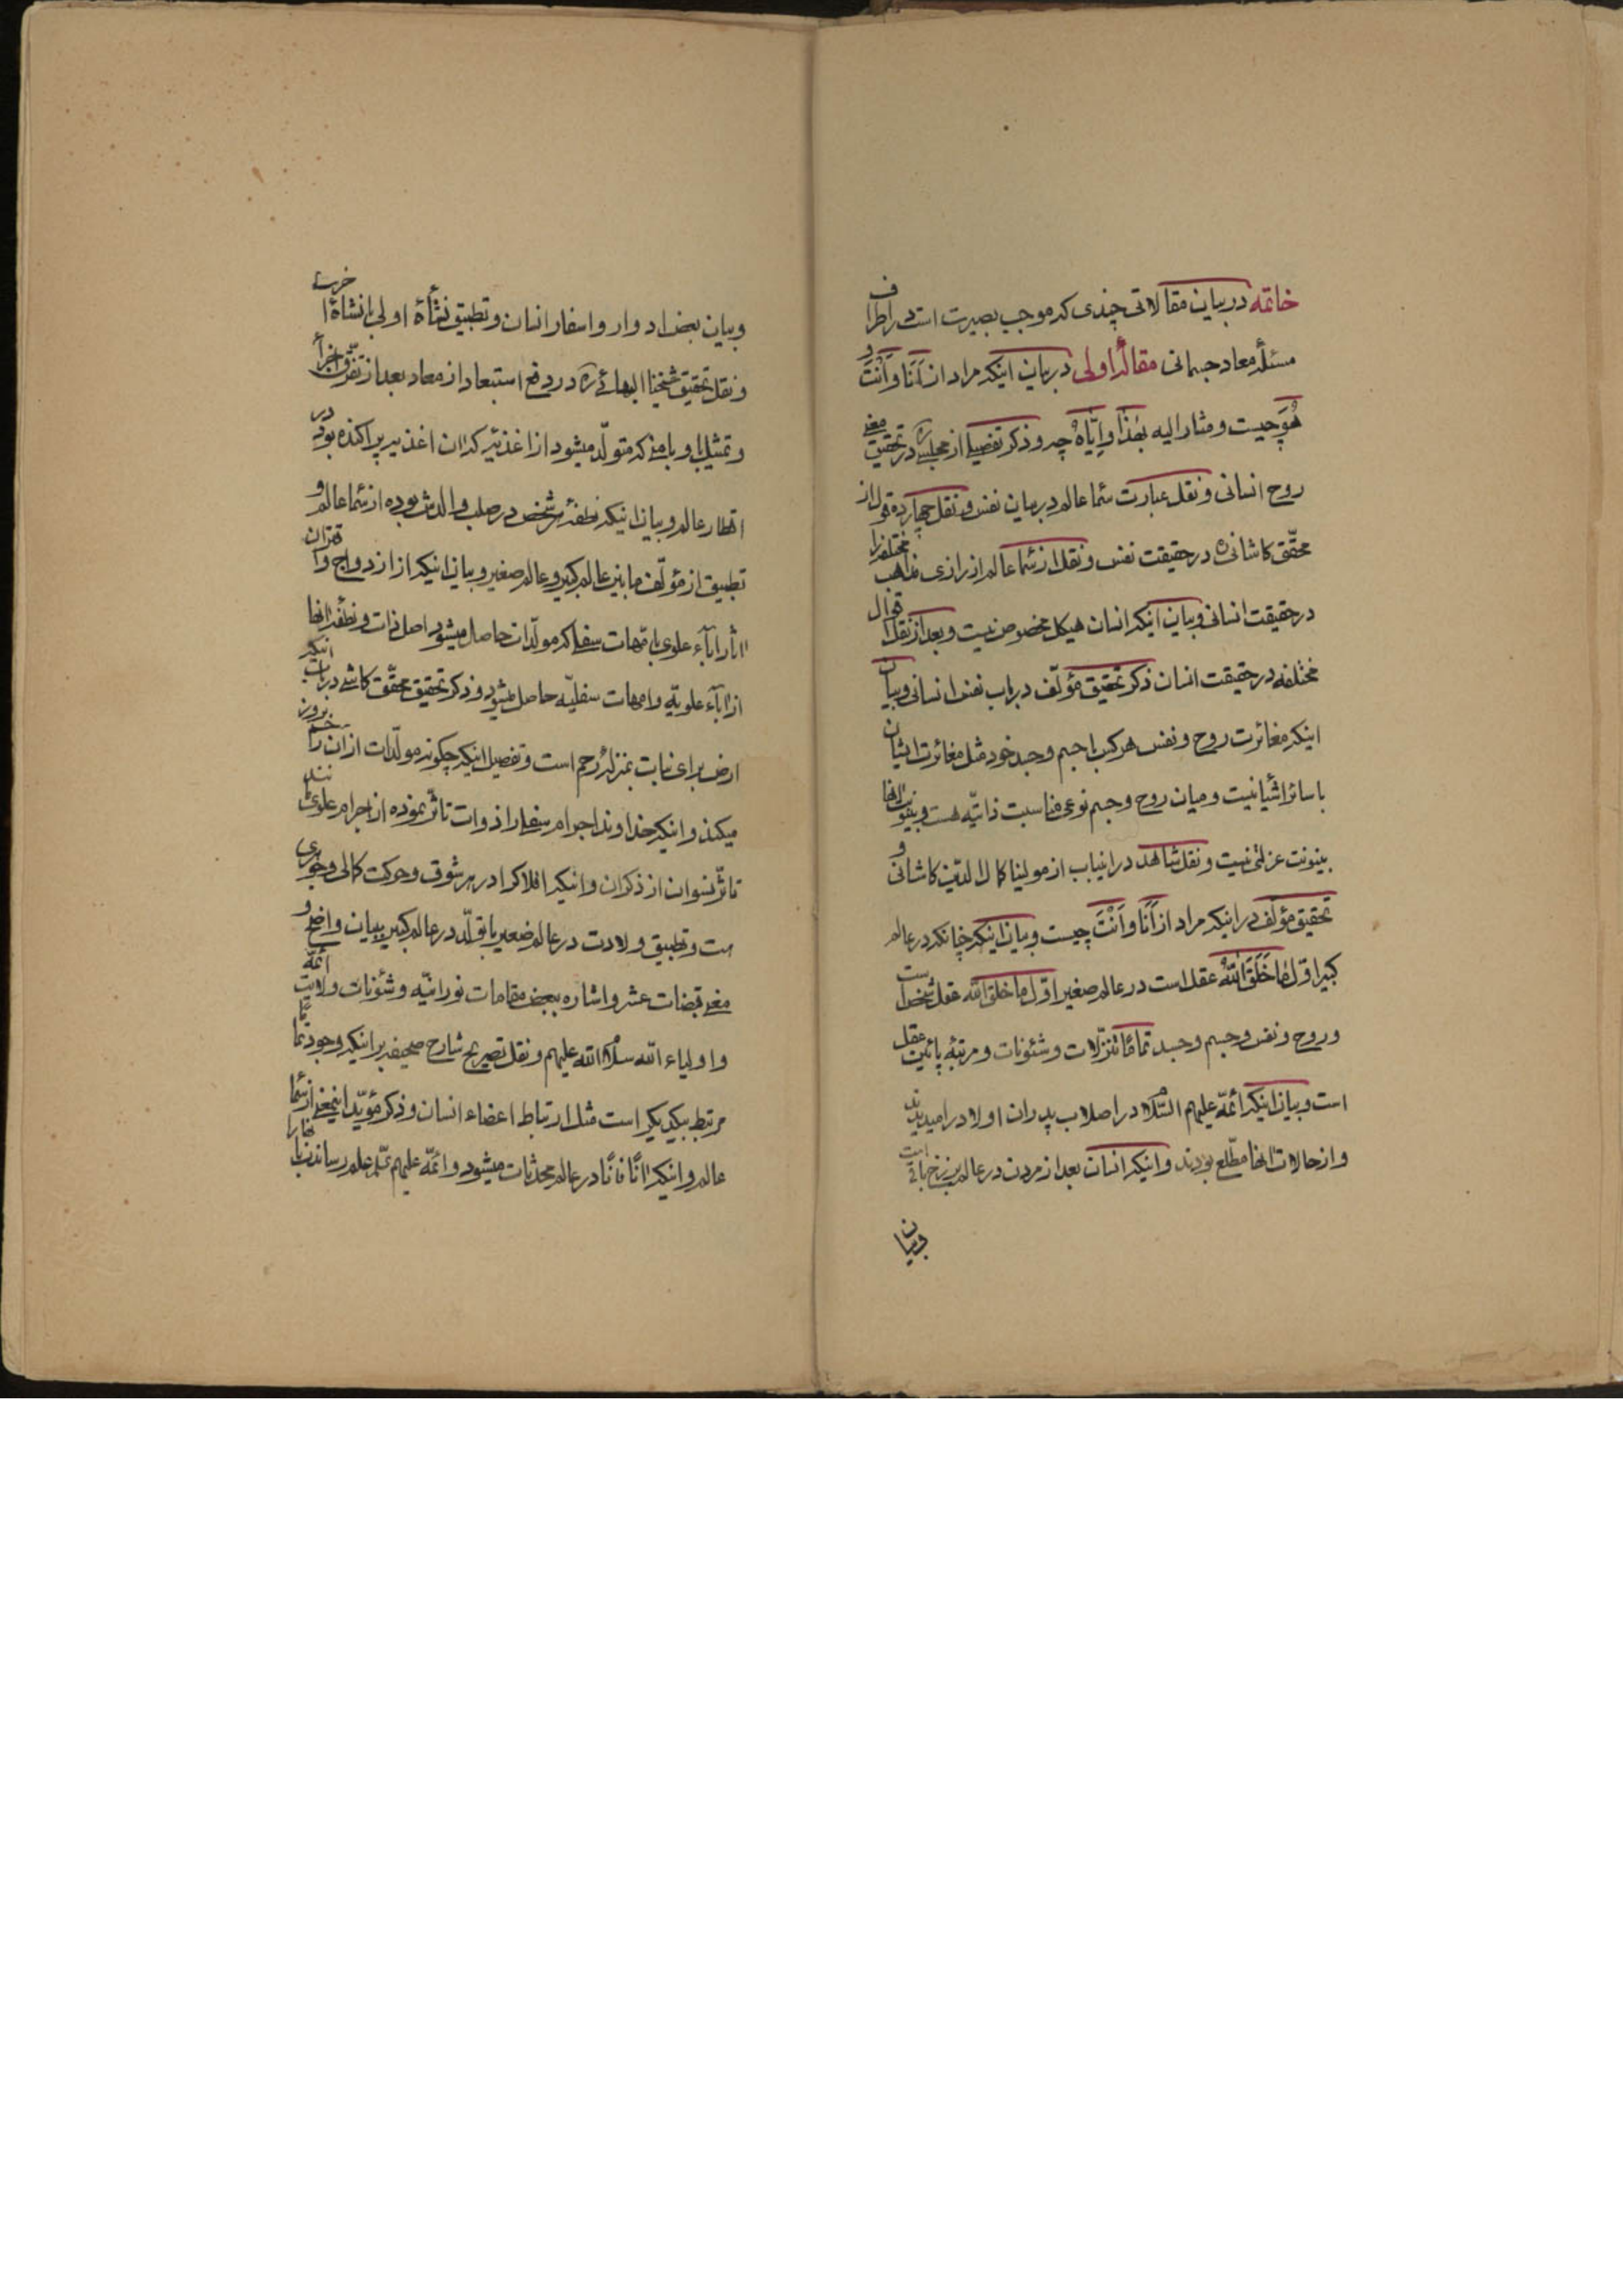 خاتمه در بیان مقالاتی چندی که موجب بصیرت است در اطراف
مسئلهٔ معاد جسمانی مقالهٔ اولی در بیان اینکه مراد از اَنَا وَاَنْتَ و
هُوَ چیست و مشار الیه بهٰذا وایّاهُ چه و ذکر تفصیلی از مجلسی ره در تحقیق معنی
روح انسانی و نقل عبارت سماء عالم در بیان نفس و نقل چهارده قول از
محقّق کاشانی ره در حقیقت نفس و نقل از سماء عالم از رازی مذاهب مختلفه را
در حقیقت انسانی و بیان اینکه انسان هیکل مخصوص نیست و بعد از نقل اقوال
مختلفه در حقیقت انسان ذکر تحقیق مؤلّف در باب نفس انسانی و بیان
اینکه مغائرت روح و نفس هر کس با جسم و جسد خود مثل مغائرت ایشان
با سائر اشیا نیست و میان روح و جسم نوعی مناسبت ذاتیّه هست و بینونت آنها
بینونت عزلتی نیست و نقل شاهد در اینباب از مولینا کمال الدّین کاشانی و
تحقیق مؤلف در اینکه مراد از اَنَا وَاَنْتَ چیست و بیان اینکه چنانکه در عالم
کبیر اوّل مٰا خَلَقَ اللّٰهُ عقل است در عالم صغیر اوّل ما خلق الله عقل شخص است
و روح و نفس و جسم و جسد تمامًا تنزّلات و شئونات و مرتبهٔ پائین عقل
است و بیان اینکه ائمّه علیهم السّلام در اصلاب پدران اولاد را میدیدند
و از حالات آنها مطّلع بودند و اینکه انسان بعد از مردن در عالم برزخ باقی است
و بیان
و بیان بعض ادوار و اسفار انسان و تطبیق نشأهٔ اولی با نشاهٔ اخری
و نقل تحقیق شیخنا البهائی ره در دفع استبعاد از معاد بعد از تفرّق اجزأ
و تمثیل او با منی که متولّد میشود از اغذیه که ان اغذیه پراکنده بوده در
اقطار عالم و بیان اینکه نطفهٔ هر شخص در صلب والدش بوده از سماء عالم و
تطبیق از مؤلّف ما بین عالم کبیر و عالم صغیر و بیان اینکه از ازدواج و اقتران
اثار اباء علوی با امّهات سفلی که مولّدات حاصل میشود اصل ذات و نطفهٔ انها
از اباء علویّه و امهات سفلیّه حاصل میشود و ذکر تحقیق محقّق کاشی در بیان اینکه
ارض برای نبات بمنزلهٔ رحم است و تفصیل اینکه چگونه مولّدات از ان رحم بروز
میکنند و اینکه خداوند اجرام سفلی را ذوات تاثّر نموده از اجرام علوی مانند
تاثّر نسوان از ذکران و اینکه افلاک را در هر شوق و حرکت کمالی و جوری
است و تطبیق ولادت در عالم صغیر با تولّد در عالم کبیر ببیان واضح و
معنی قبضات عشر و اشاره ببعض مقامات نورانیّه و شئونات ولایت ائمّه
و اولیاء الله سلام الله علیهم و نقل تصریح شارح صحیفه بر اینکه وجود تمام
مرتبط بیکدیکر است مثل ارتباط اعضاء انسان و ذکر مؤیّد اینمعنی از سماء
عالم و اینکه انًا فانًا در عالم محدثات میشود و ائمّه علیهم